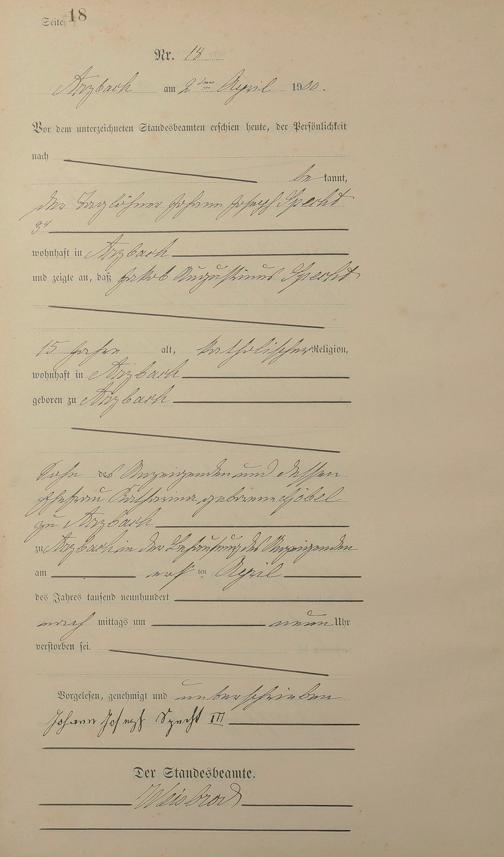 Seite 18
Nr. 18
Arzbach am 2ten April 1900.
Vor dem unterzeichneten Standesbeamten erschien heute, der Persönlichkeit
nach
be kannt,
der Taglöhner Johann Joseph Specht
3t
wohnhaft in Arzbach
und zeigte an, daß Jakob Augustinus Specht
15 Jahre alt, katholischer Religion,
wohnhaft in Arzbach
geboren zu Arzbach
Sohn des Anzeigenden und dessen
Ehefrau Katharina geborene Göbel
zu Arzbach
zu Arzbach in der Behausung des Anzeigenden
am ersten April
des Jahres tausend neunhundert
nach mittags um neun Uhr
verstorben sei.
Vorgelesen, genehmigt und unterschrieben
Johann Joseph Specht III
Der Standesbeamte.
Weisbrod